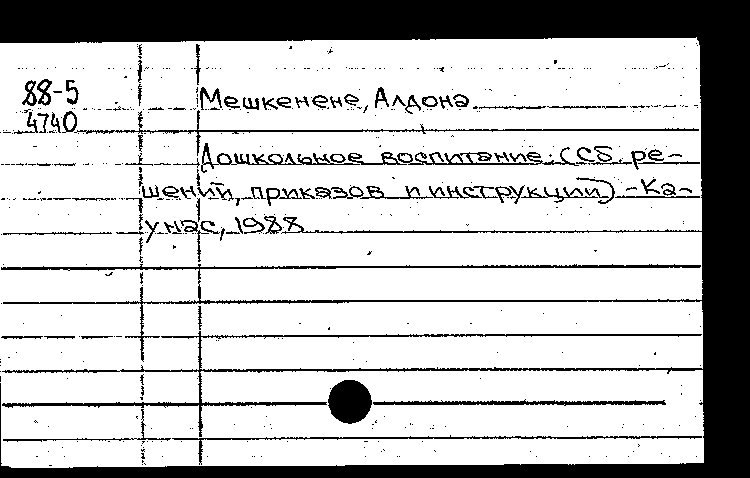 88-5
4740
Мешкенене, Алдона
Дошкольное воспитание: (Сб. ре-
шений, приказов и инструкций) - Ка-
унас, 1988